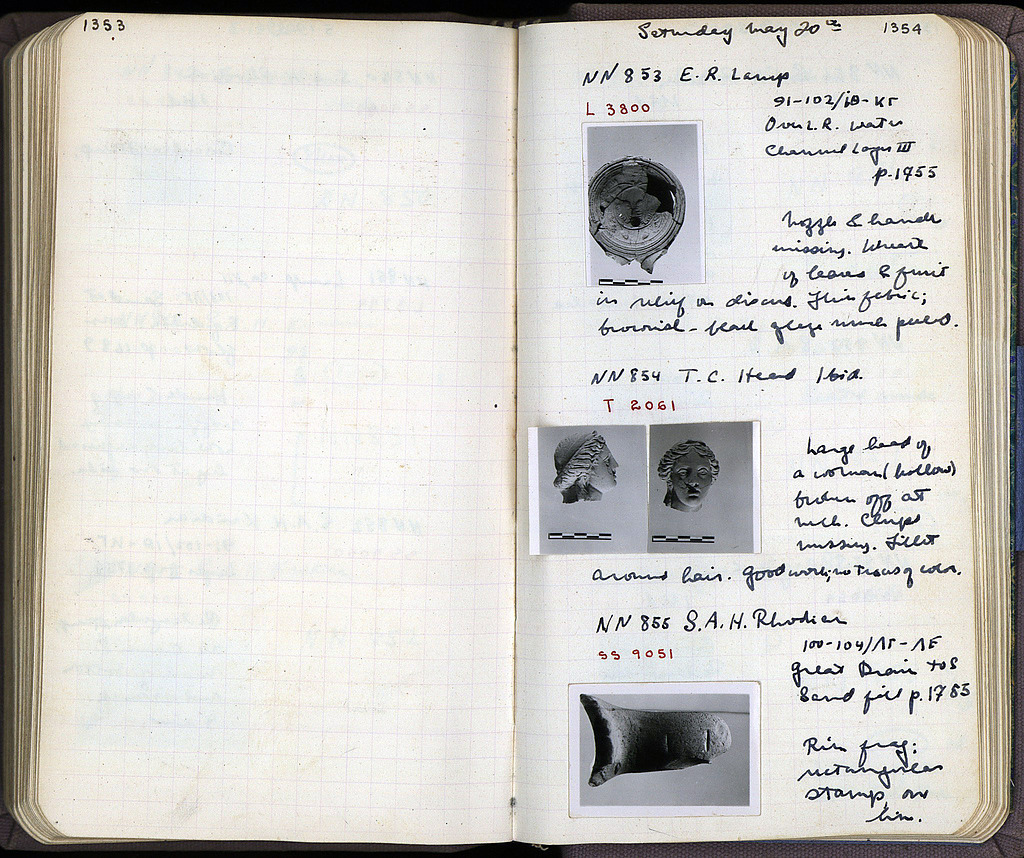 1353
Saturday May 20th 1354
NN 853 E.R. Lamp
L 3800
91-102/ΙΘ-ΚΓ
Over L.R. Water
Channel Layer III
p. 1755
Nozzle & handle
missing. Wreath
of leaves & fruit
in relief on discus. Thin fabric;
brownish-black glaze much peeled.
NN 854 T.C. Head Ibid.
T 2061
Large head of
a woman (hollow)
broken off at
neck. Chips
missing. Fillet
around hair. Good work; no traces of color.
NN 855 S.A.H. Rhodian
SS 9051
100-104/ΛΓ-ΛΕ
Great Drain
Sand fill p. 1783
Rim frag;
rectangular
stamp on